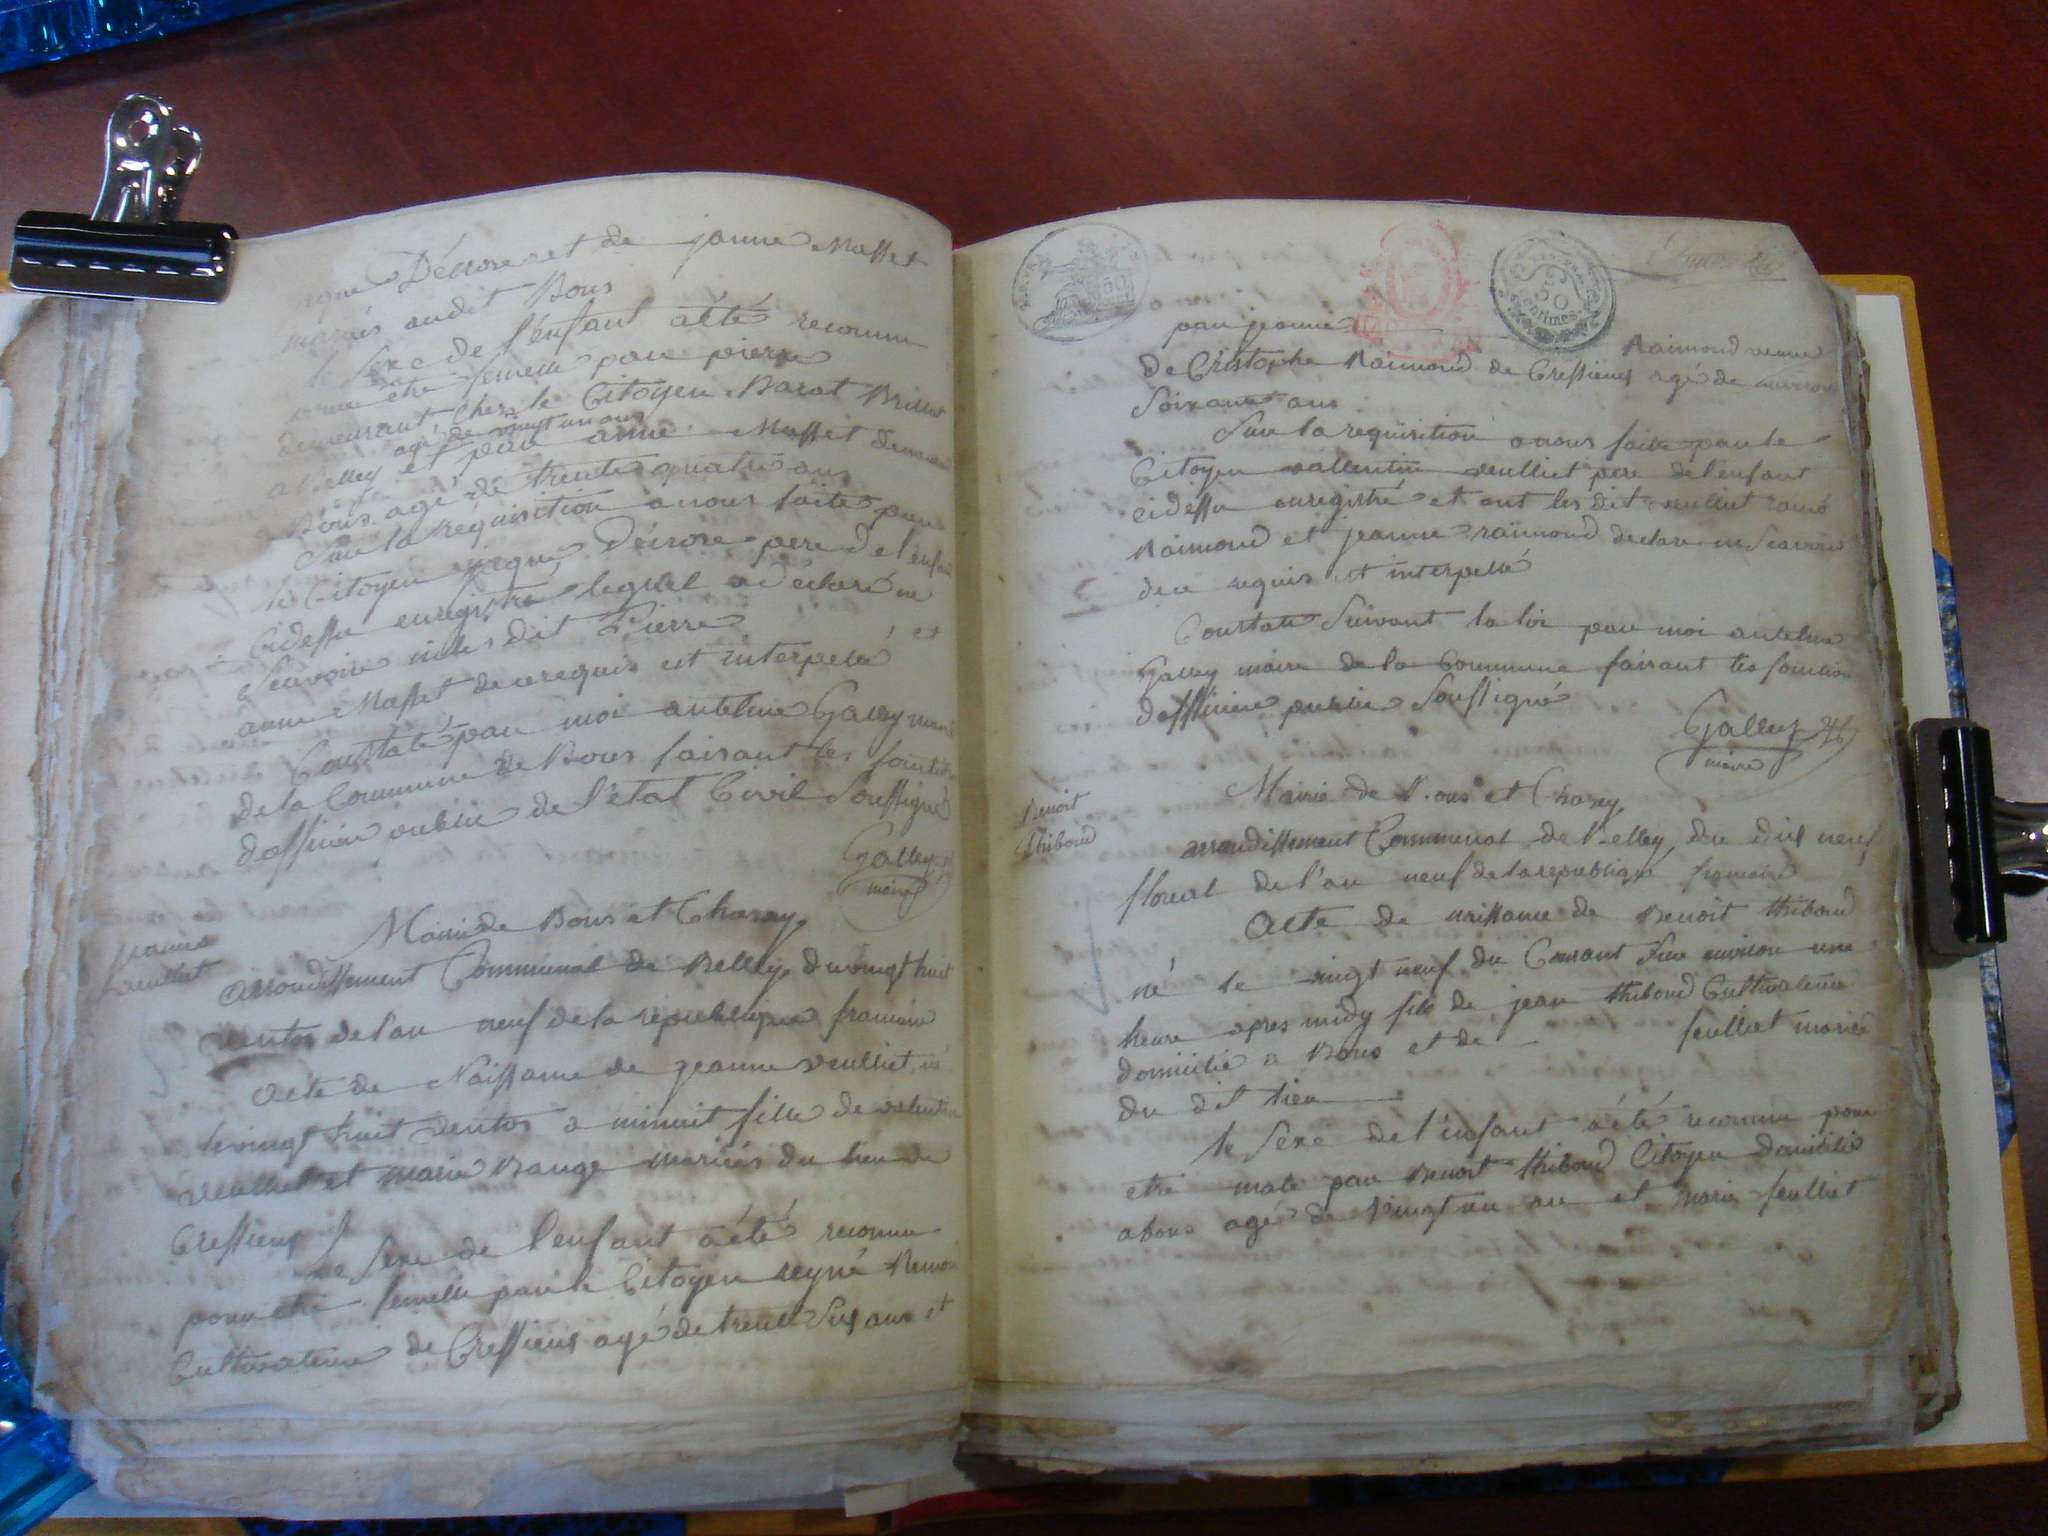 Décrose et de janne Masset
mariés audit Bons
le sexe de l'enfant a été reconnu
etre femelle par pierre
demeurant Chez le Citoyen Barat Brillat
agé de vingt un ans
a Belley et par anne Masset
a Bons agé de trente quatre ans
Sur la réquisition a nous faite par
le Citoyen Décrose pere de l'enfant
Cidessu enregistré lequel a déclaré ne
Scavoire ni les dit Pierre et
anne Masset de ce requis et interpellé
Constaté par moi antelme Galley maire
de la Commune de Bons faisant les fonctions
dofficier public de l'état Civil Soussigné
Galley
maire
Mairie de Bons et Chazey
jeanne
veulliet
arrondissement Communal de Belley du vingt huit
ventos de l'an neuf de la république francaise
acte de Naissance de jeanne veulliet né
le vingt huit ventos a minuit fille de valentin
veulliet et marie Bange mariés du lieu de
Cressieus
le Sexe de l'enfant a été reconnu
pour etre femelle par le Citoyen Remon
Cultivateur de Cressieus agé de trente Six ans et
50
50
Centimes
par jeanne Raimond veuve
de Cristophe Raimond de Cressieus agé de
Soixante ans
Sur la requisition a nous faite par le
Citoyen vallentin veulliet pere de l'enfant
cidessu enregistré et ont les dit veulliet
Raimond et jeanne raimond declare ne Scavoire
de ce requis et interpellé
Constaté Suivant la loi par moi antelme
Galley maire de la Commune faisant les fonction
dofficier public Soussigné
Galley
maire
Benoit
thiboud
Mairie de Bons et Chazey
arrondissement Communal de Belley du dix neuf
floreal de l'an neuf de la republique francaise
acte de naissance de Benoit thiboud
né le vingt neuf du Courant Sur environ une
heure apres midy fils de jean thiboud Cultivateur
domicilié a Bons et de feulliet mariés
du dit lieu
le Sexe de l'enfant a été reconnu pour
etre male par Benoit thiboud Citoyen domicilié
a bons agé de vingt un an et marie feulliet